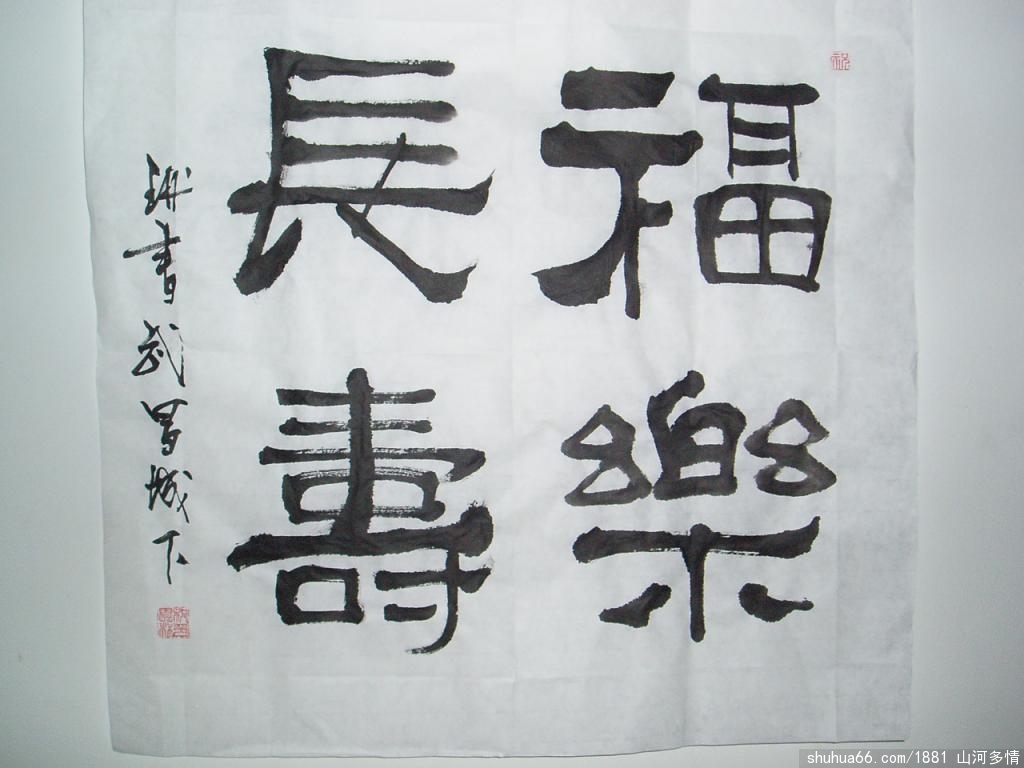 福樂
長壽
書武昌城下
shuhua66.com/1881 山河多情